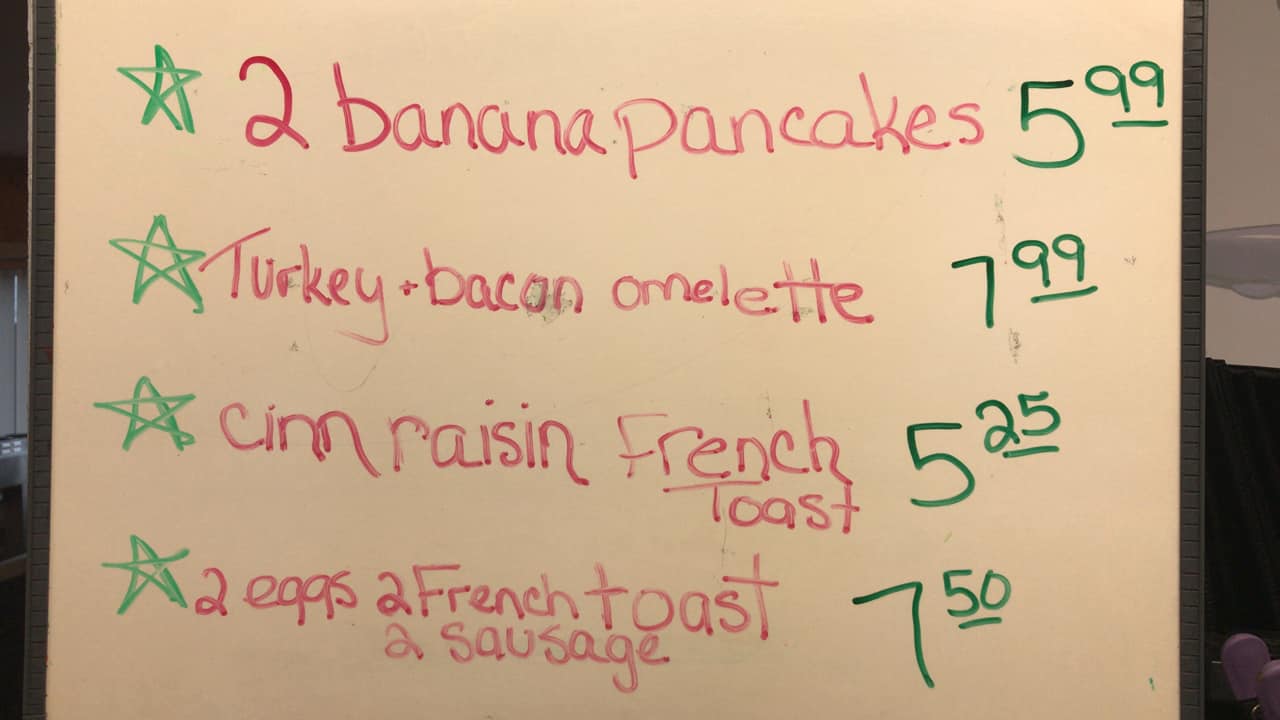 2 banana pancakes 5 99
Turkey + bacon omelette 7 99
cinn raisin French 5 25
Toast
2 eggs 2 French toast 7 50
2 sausage